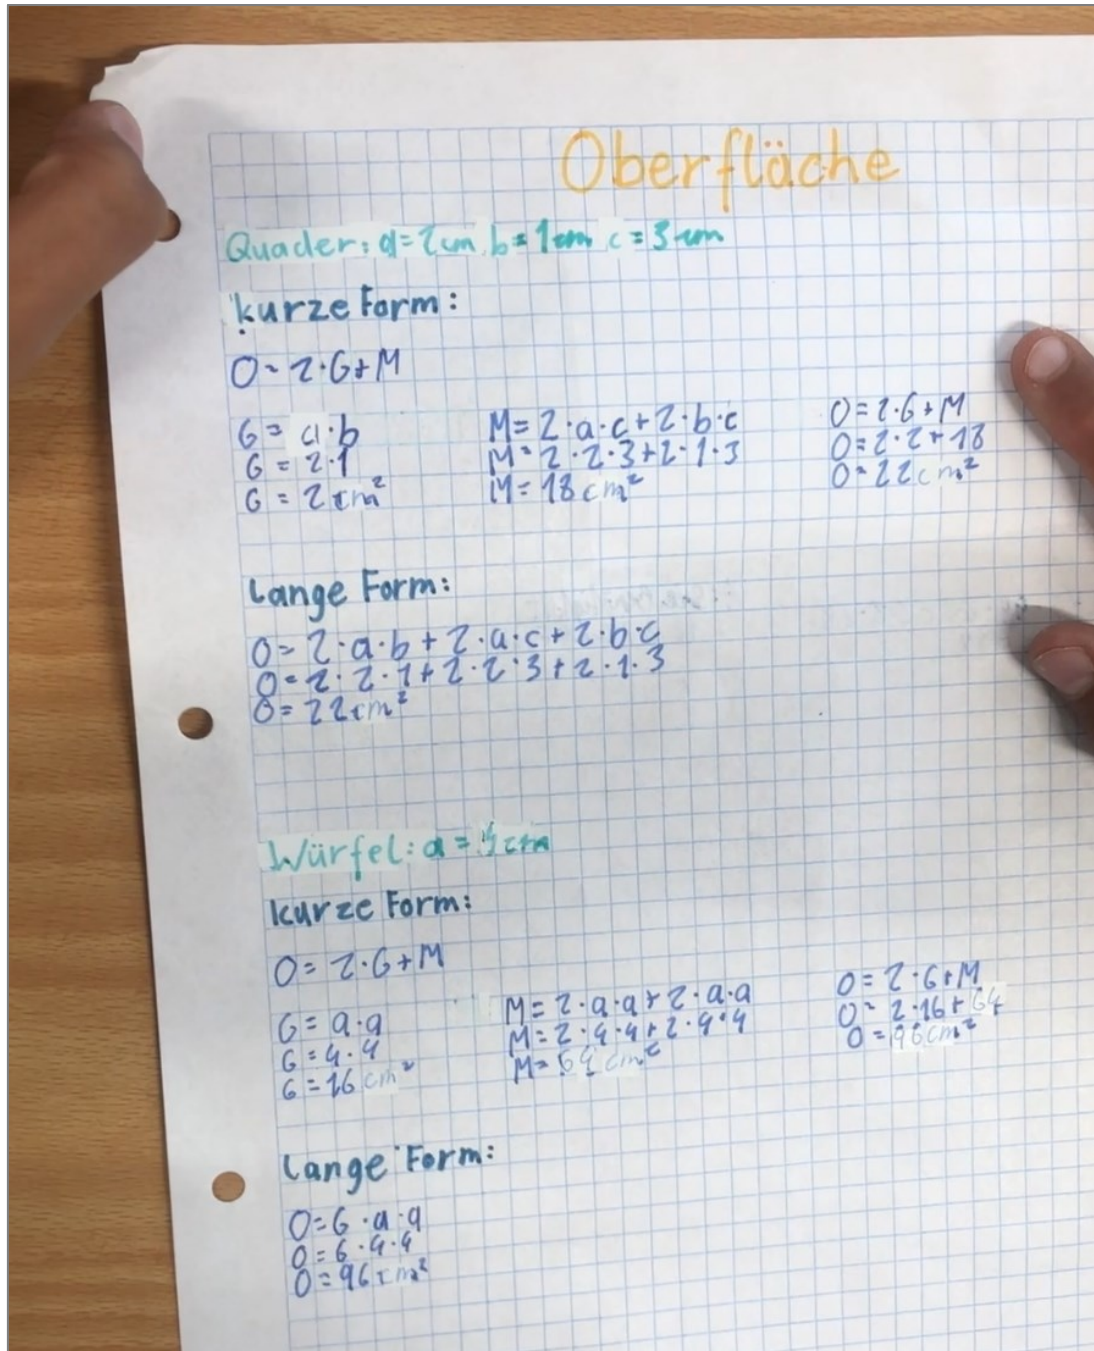 Oberfläche
Quader: a=2cm, b=1cm, c=3cm
kurze Form:
O=2·G+M
G= a·b
G = 2·1
G = 2cm²
M=2·a·c+2·b·c
M=2·2·3+2·1·3
M=18cm²
O=2·G+M
O=2·2+18
O=22cm²
Lange Form:
O=2·a·b+2·a·c+2·b·c
O=2·2·1+2·2·3+2·1·3
O=22cm²
Würfel: a=4cm
kurze Form:
O=2·G+M
G=a·a
G=4·4
G=16cm²
M=2·a·a+2·a·a
M=2·4·4+2·4·4
M=64cm²
O=2·G+M
O=2·16+64
O=96cm²
Lange Form:
O=6·a·a
O=6·4·4
O=96cm²